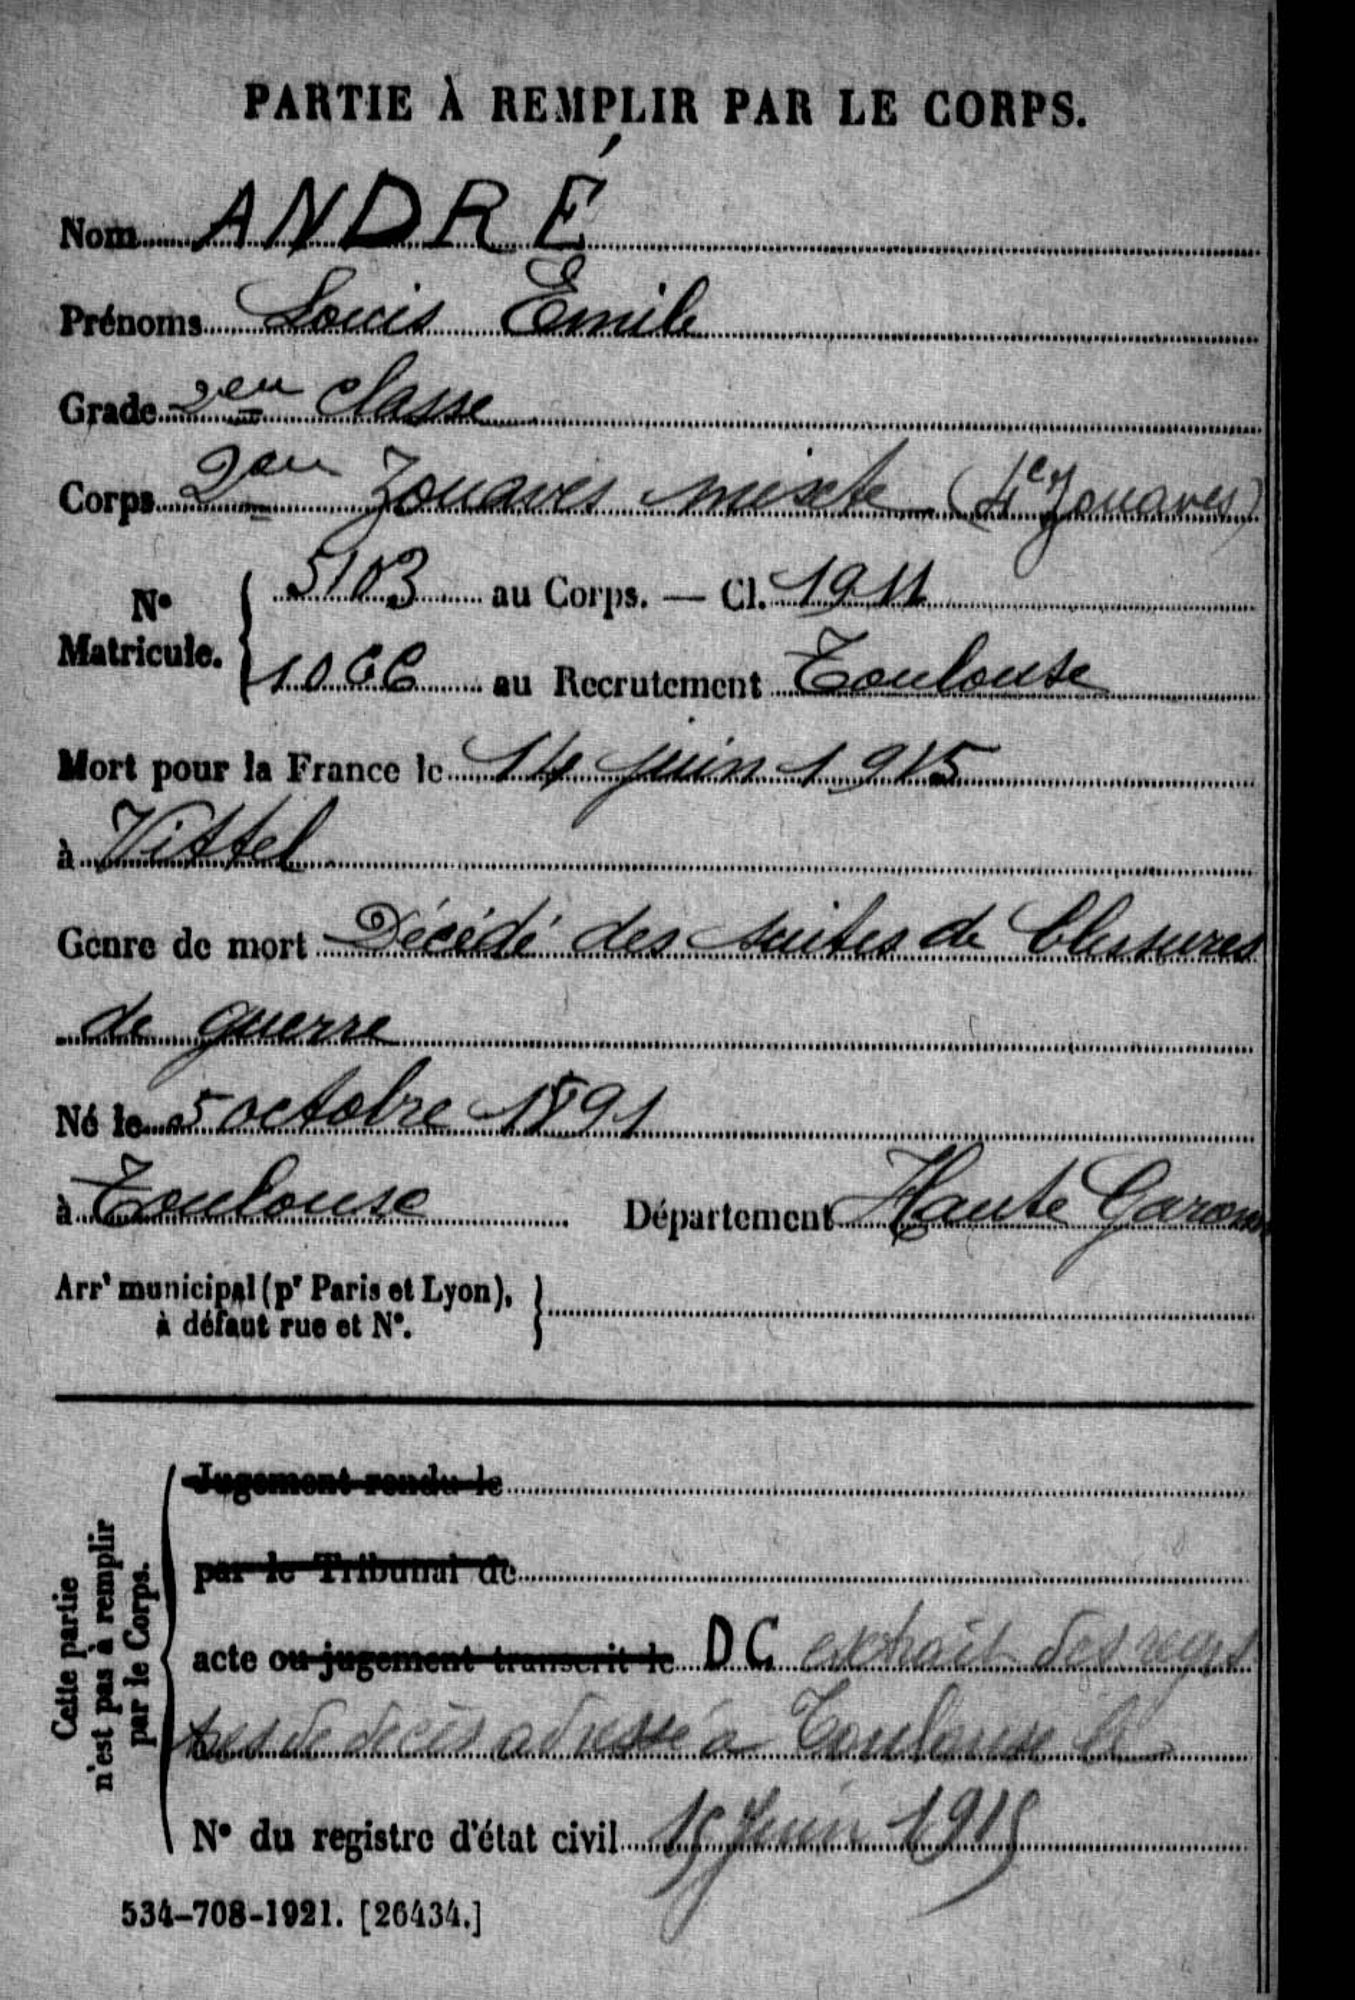 PARTIE À REMPLIR PAR LE CORPS.
Nom ANDRÉ
Prénoms Louis Emile
Grade 2eme classe
Corps 2eme Zouaves mixte (4e Zouaves)
N° Matricule. 5103 au Corps. — Cl. 1911
1066 au Recrutement Toulouse
Mort pour la France le 14 juin 1915
à Vittel
Genre de mort Décédé des suites de blessures
de guerre
Né le 5 octobre 1891
à Toulouse Département Haute Garonne
Arrt municipal (pr Paris et Lyon),
à défaut rue et N°.
Cette partie
n'est pas à remplir
par le Corps.
Jugement rendu le
par le Tribunal de
acte ou jugement transcrit le DC extrait des regis
tres de décès adressé à Toulouse le
N° du registre d'état civil 15 Juin 1915
534-708-1921. [26434.]